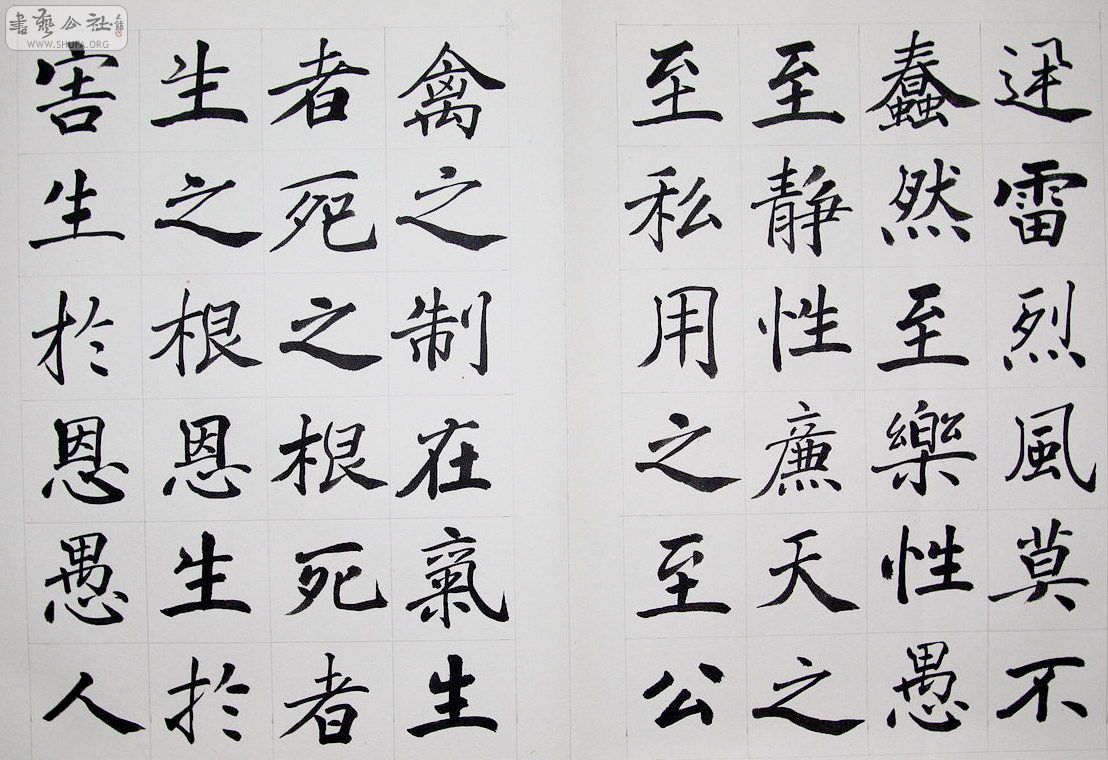 迅雷烈風莫不
蠢然至樂性愚
至静性廉天之
至私用之至公
禽之制在氣生
者死之根死者
生之根恩生於
害生於恩愚人
書藝公社
WWW.SHUFA.ORG